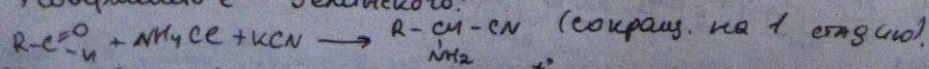 Зелинского.
R-C=O-H + NH4Cl + KCN ⟶ R-CH-CN (сокращ. на 1 стадию).
NH2